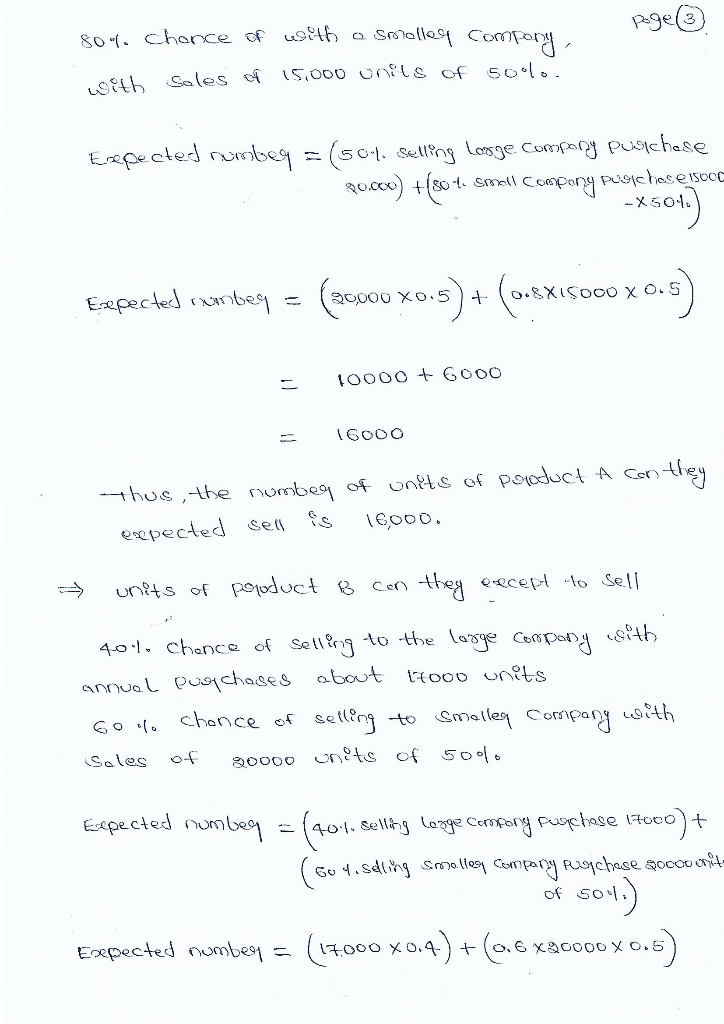 page 3
80%. chance of with a smaller company,
with sales of 15,000 units of 50%.
Expected number = (50%. selling large company purchase
20.000) + (80%. small company purchase 15000
-x50%)
Expected number = (20,000 x0.5) + (0.8x15000 x 0.5)
= 10000 + 6000
= 16000
thus, the number of units of product A can they
expected sell is 16,000.
⇒ units of product B can they except to sell
40%. chance of selling to the large company with
annual purchases about 17000 units
60 %. chance of selling to smaller company with
sales of 20000 units of 50%
Expected number = (40%. selling large company purchase 17000) +
(60%. selling smaller company purchase 20000 unit
of 50%.)
Expected number = (17.000 x0.4) + (0.6 x20000 x 0.5)